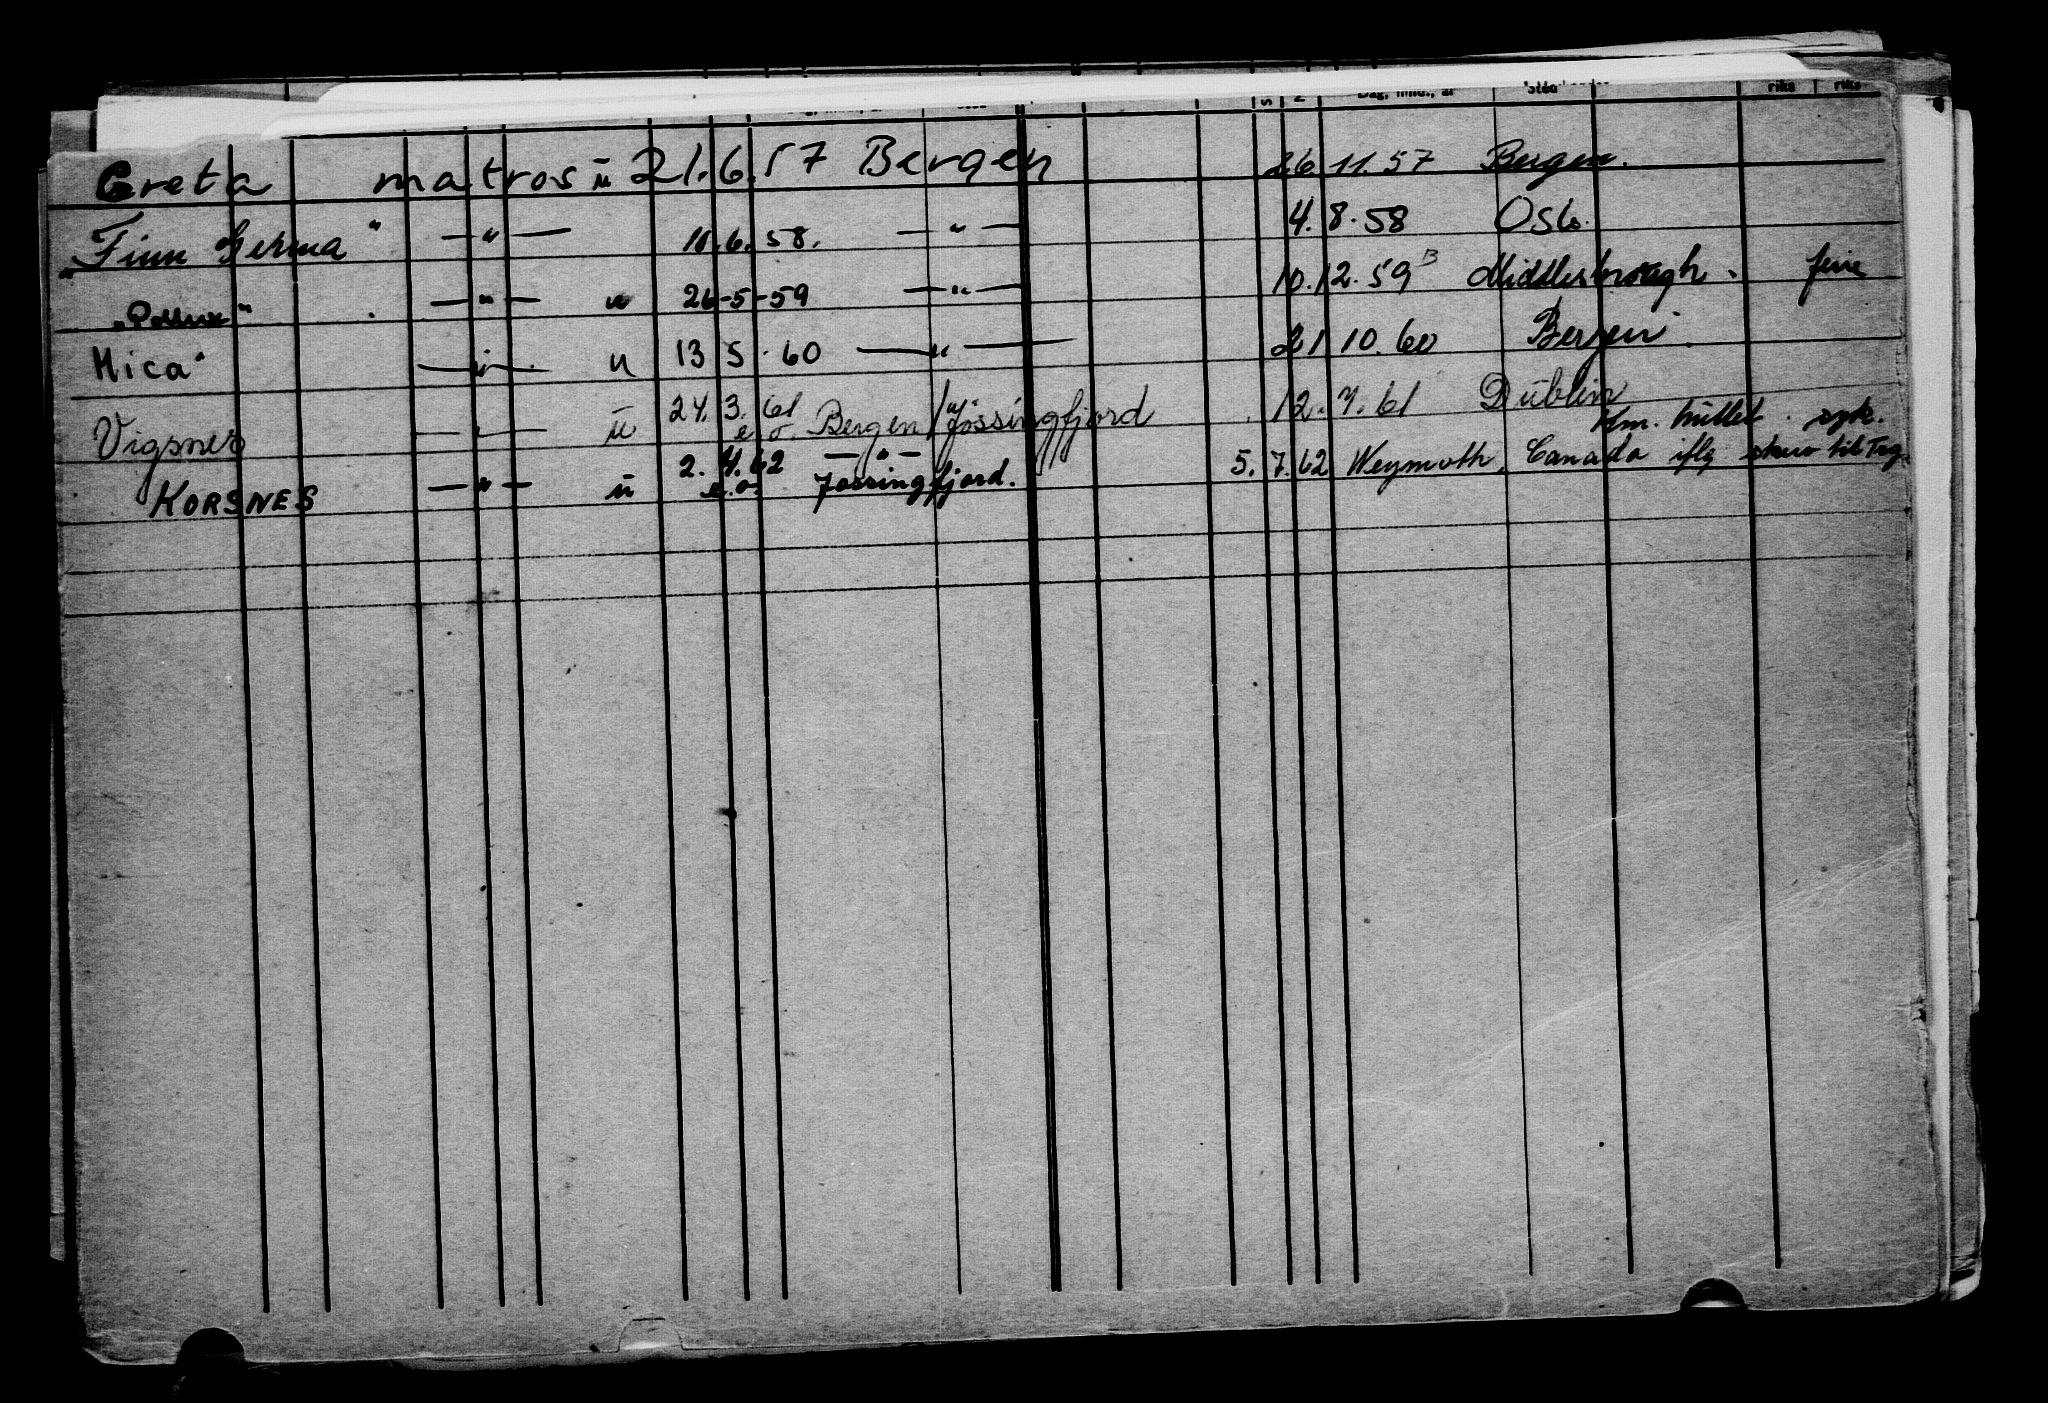 Dag, mnd., år Sted riks riks
Greta matros ū 21.6.57 Bergen 26.11.57 Bergen.
"Finn " — " — 11.6.58. — " — 4.8.58 Oslo.
"Pollux" — " — u 26-5-59 — " — 10.12.59 B Middlesbrough. ferie
Mica" — " — u 13 5. 60 — " — 21.10.60 Bergen.
Vigsnes — " — ū 24. 3. 61 e.o. Bergen / Jössingfjord 12.4.61 Dublin
Km. hullet. syk.
KORSNES — " — ū 2. 4. 62 e.o. — " — Jossingfjord. 5.7.62 Weymoth, Canada iflg skriv til Trg.